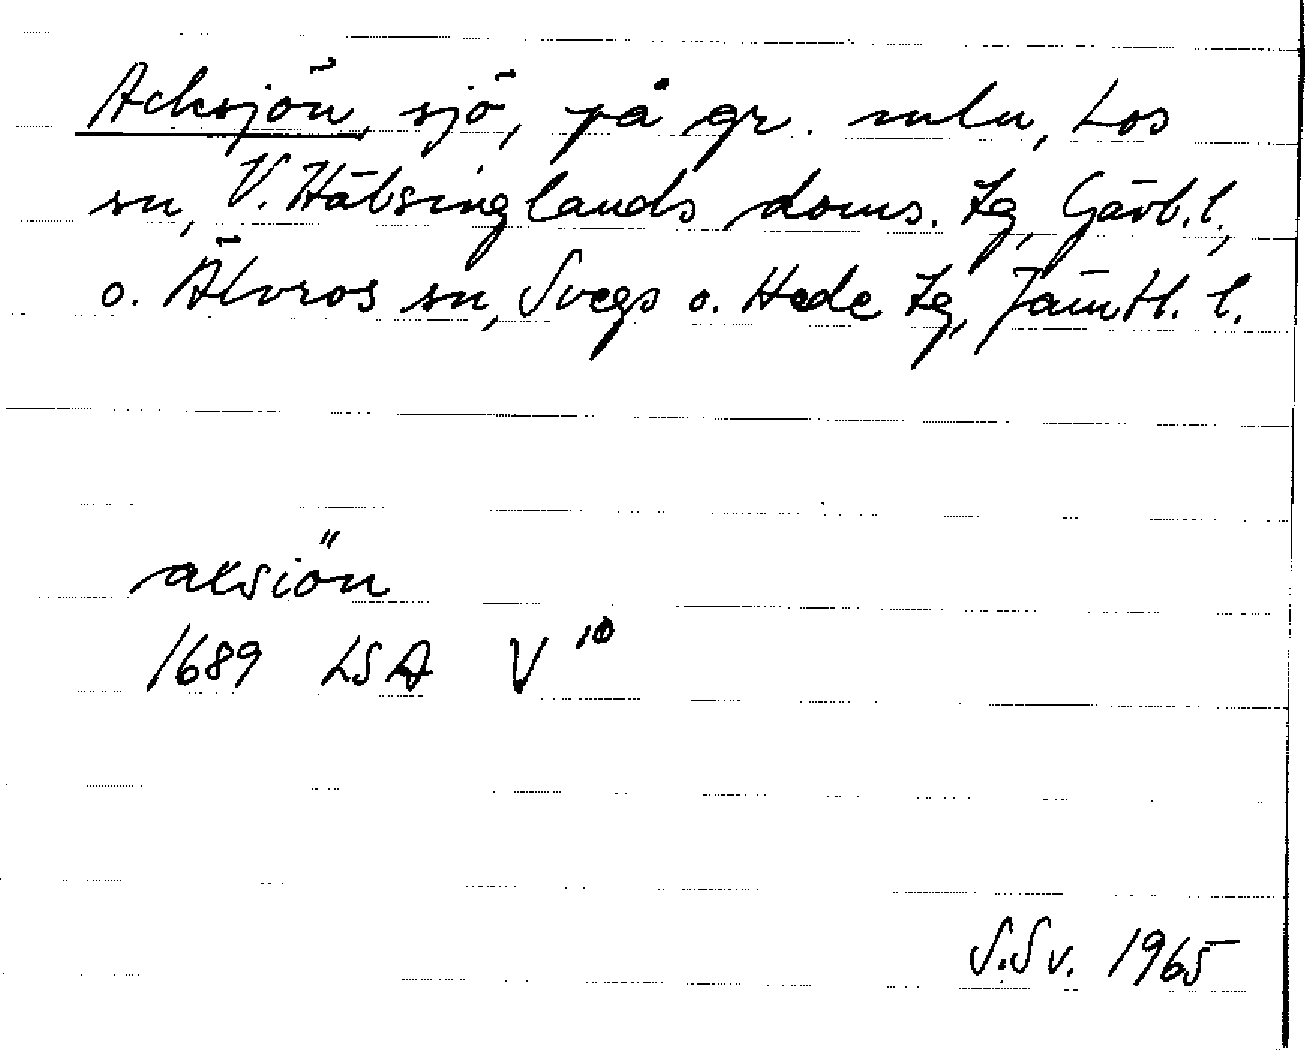 Acksjön, sjö, på gr. mln, Los
sn, V. Hälsinglands doms. tg, Gävb. l.,
o. Älvros sn, Svegs o. Hede tg, Jämtl. l.
aksiön
1689 LSA V 10
S.Sv. 1965